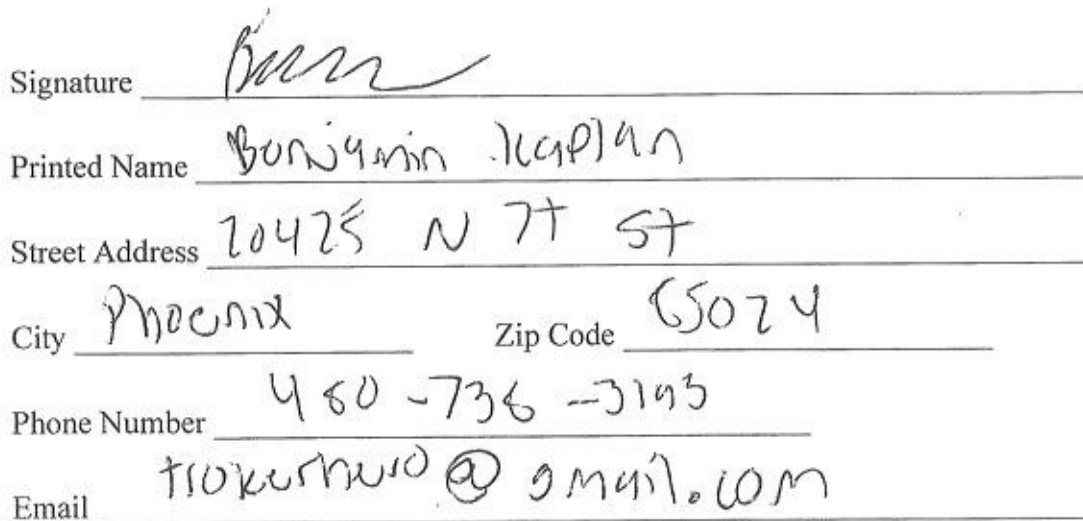 Signature
Printed Name Benjamin Kaplan
Street Address 20425 N 7t St
City Phoenix Zip Code 85024
Phone Number 480-738-3193
Email @gmail.com